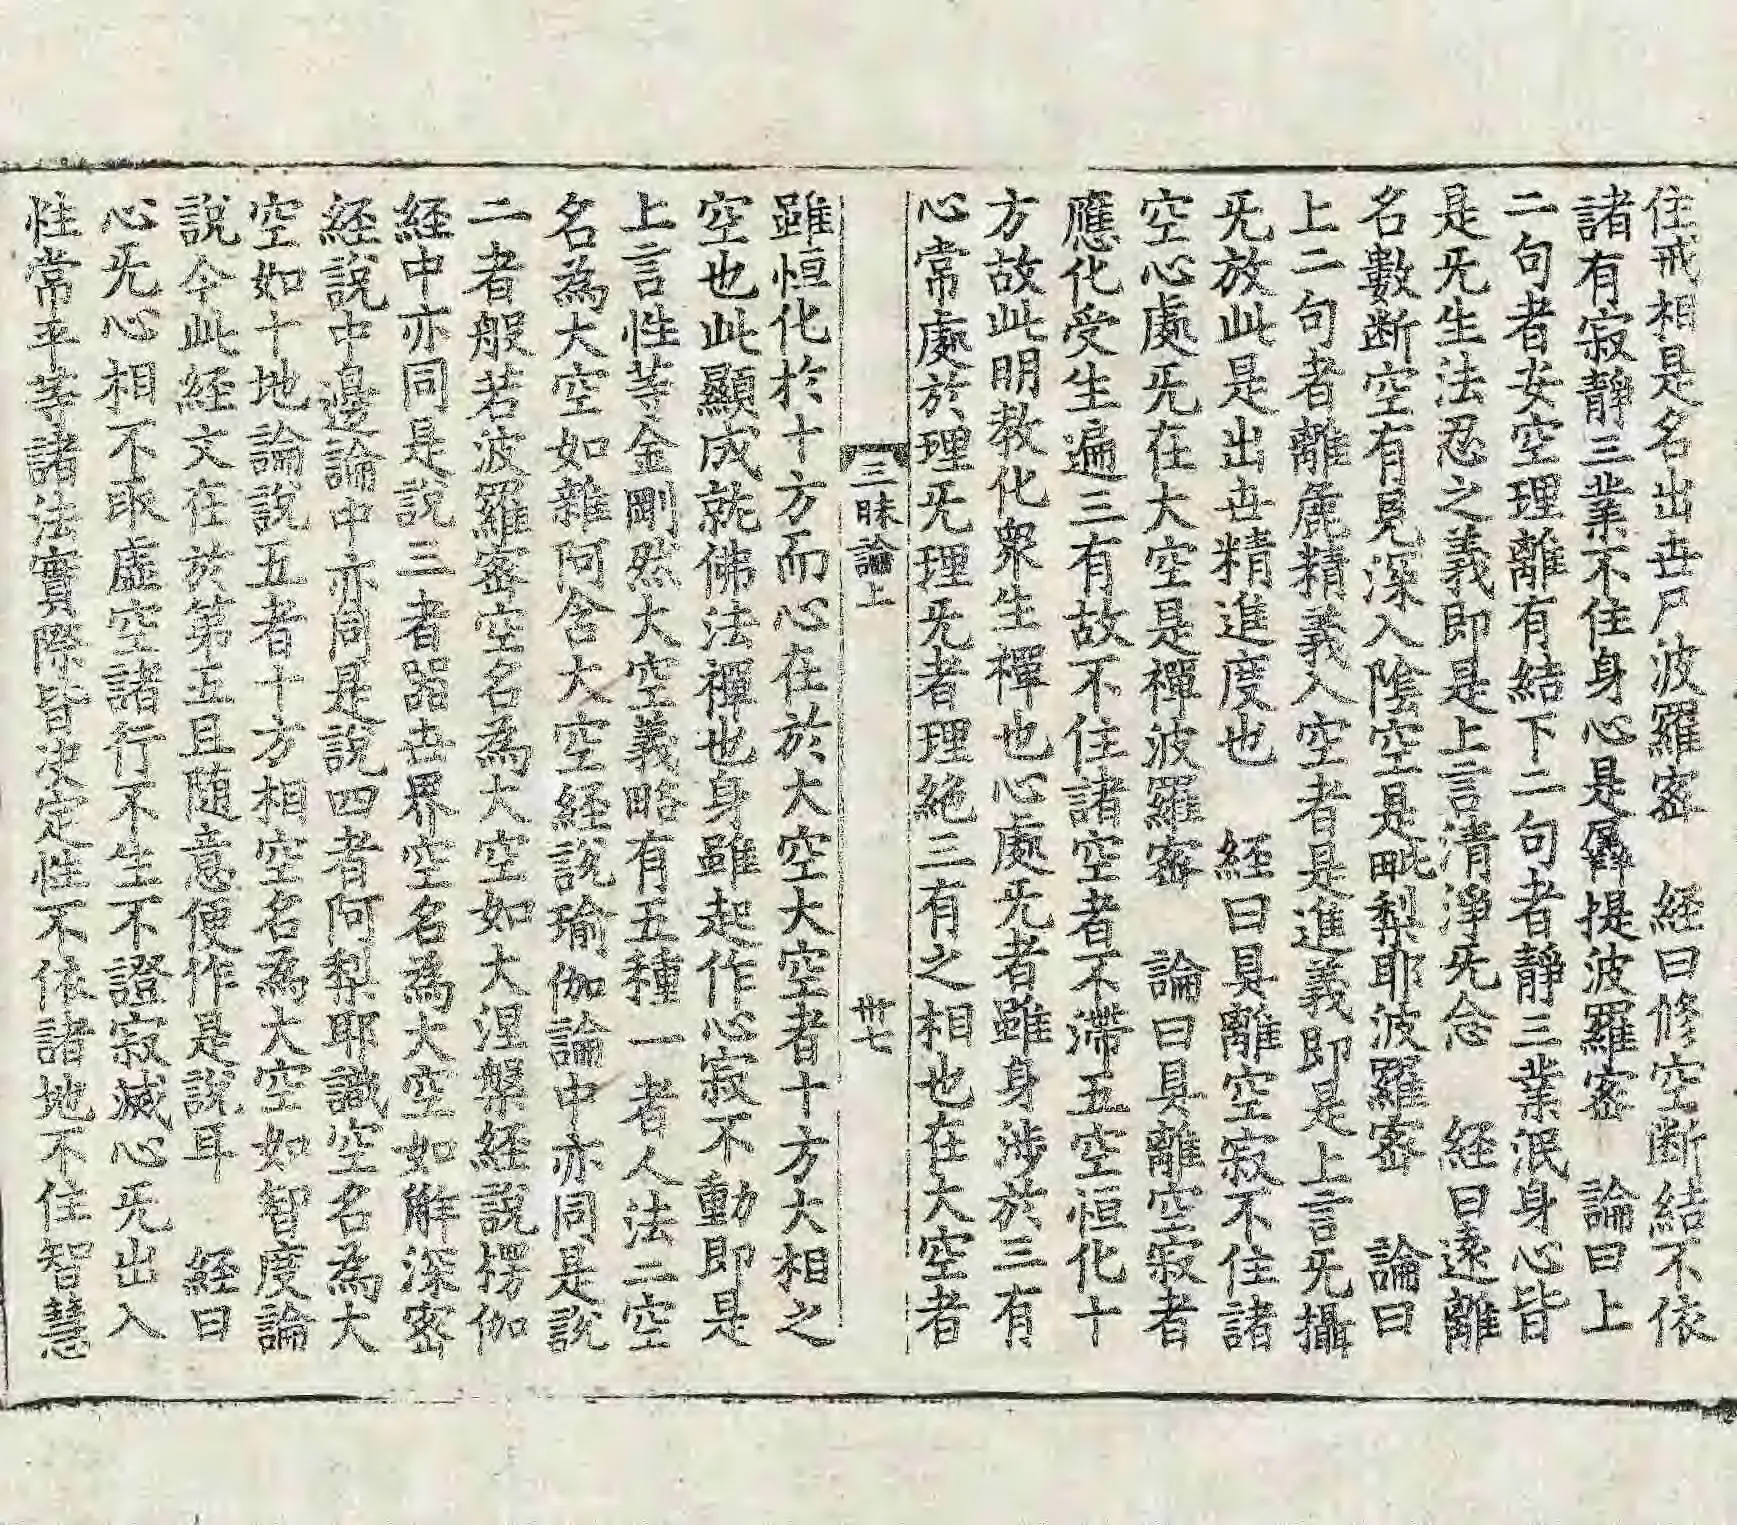 住戒相是名出世尸波羅密　経曰修空斷結不依
諸有寂靜三業不住身心是羼提波羅密　論曰上
二句者安空理離有結下二句者靜三業泯身心皆
是旡生法忍之義即是上言清淨旡念　経曰遠離
名數断空有見深入陰空是毗梨耶波羅密　論曰
上二句者離麁精義入空者是進義即是上言旡攝
旡放此是出世精進度也　経曰具離空寂不住諸
空心處旡在大空是禪波羅密　論曰具離空寂者
應化受生遍三有故不住諸空者不滯五空恒化十
方故此明教化衆生禪也心處旡者雖身涉於三有
心常處於理旡理旡者理絶三有之相也在大空者
三昧論上　卅七
雖恒化於十方而心在於大空大空者十方大相之
空也此顯成就佛法禪也身雖起作心寂不動即是
上言性等金剛然大空義略有五種一者人法二空
名為大空如雜阿含大空経說瑜伽論中亦同是說
二者般若波羅密空名為大空如大涅槃経說楞伽
経中亦同是說三者器世界空名為大空如解深密
経說中邊論中亦同是說四者阿梨耶識空名為大
空如十地論說五者十方相空名為大空如智度論
說今此経文在於第五且随意便作是說耳　経曰
心旡心相不取虛空諸行不生不證寂滅心旡出入
性常平等諸法實際皆決定性不依諸地不住智慧